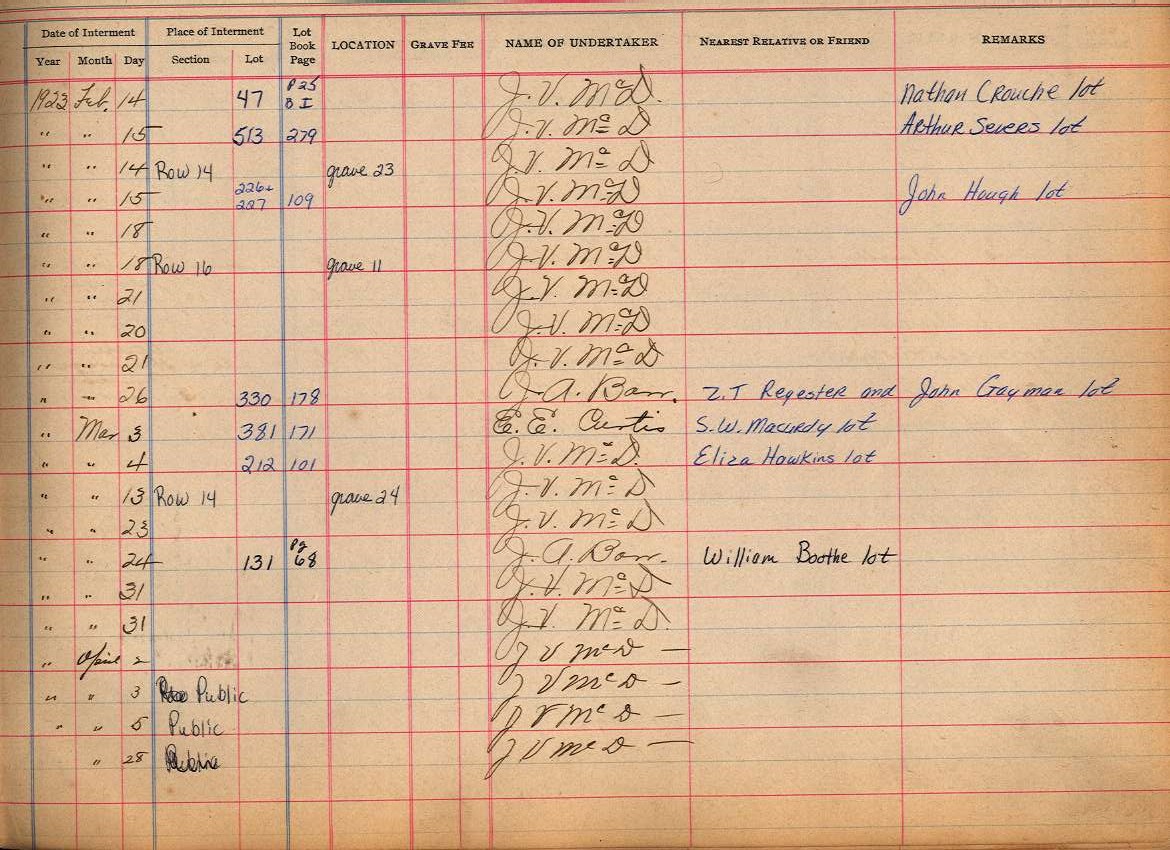 Date of Interment Place of Interment Lot Book Page LOCATION GRAVE FEE NAME OF UNDERTAKER NEAREST RELATIVE OR FRIEND REMARKS
Year Month Day Section Lot
1923 Feb. 14 47 P25 B I J. V. McD. Nathan Crouche lot
" " 15 513 279 J. V. McD Arthur Severs lot
" " 14 Row 14 grave 23 J. V. McD
" " 15 226+ 227 109 J. V. McD John Hough lot
" " 18 J. V. McD
" " 18 Row 16 grave 11 J. V. McD
" " 21 J. V. McD
" " 20 J. V. McD
" " 21 J. V. McD
" " 26 330 178 J. A. Barr. Z.T Regester and John Gayman lot
" Mar 3 381 171 E. E. Curtis S.W. Macurdy lot
" " 4 212 101 J. V. McD. Eliza Hawkins lot
" " 13 Row 14 grave 24 J. V. McD
" " 23 J. V. McD
" " 24 131 Pg 68 J. A. Barr. William Boothe lot
" " 31 J. V. McD
" " 31 J. V. McD.
" April 2 J V McD —
" " 3 Public J V McD —
" " 5 Public J V McD —
" 28 J V McD —